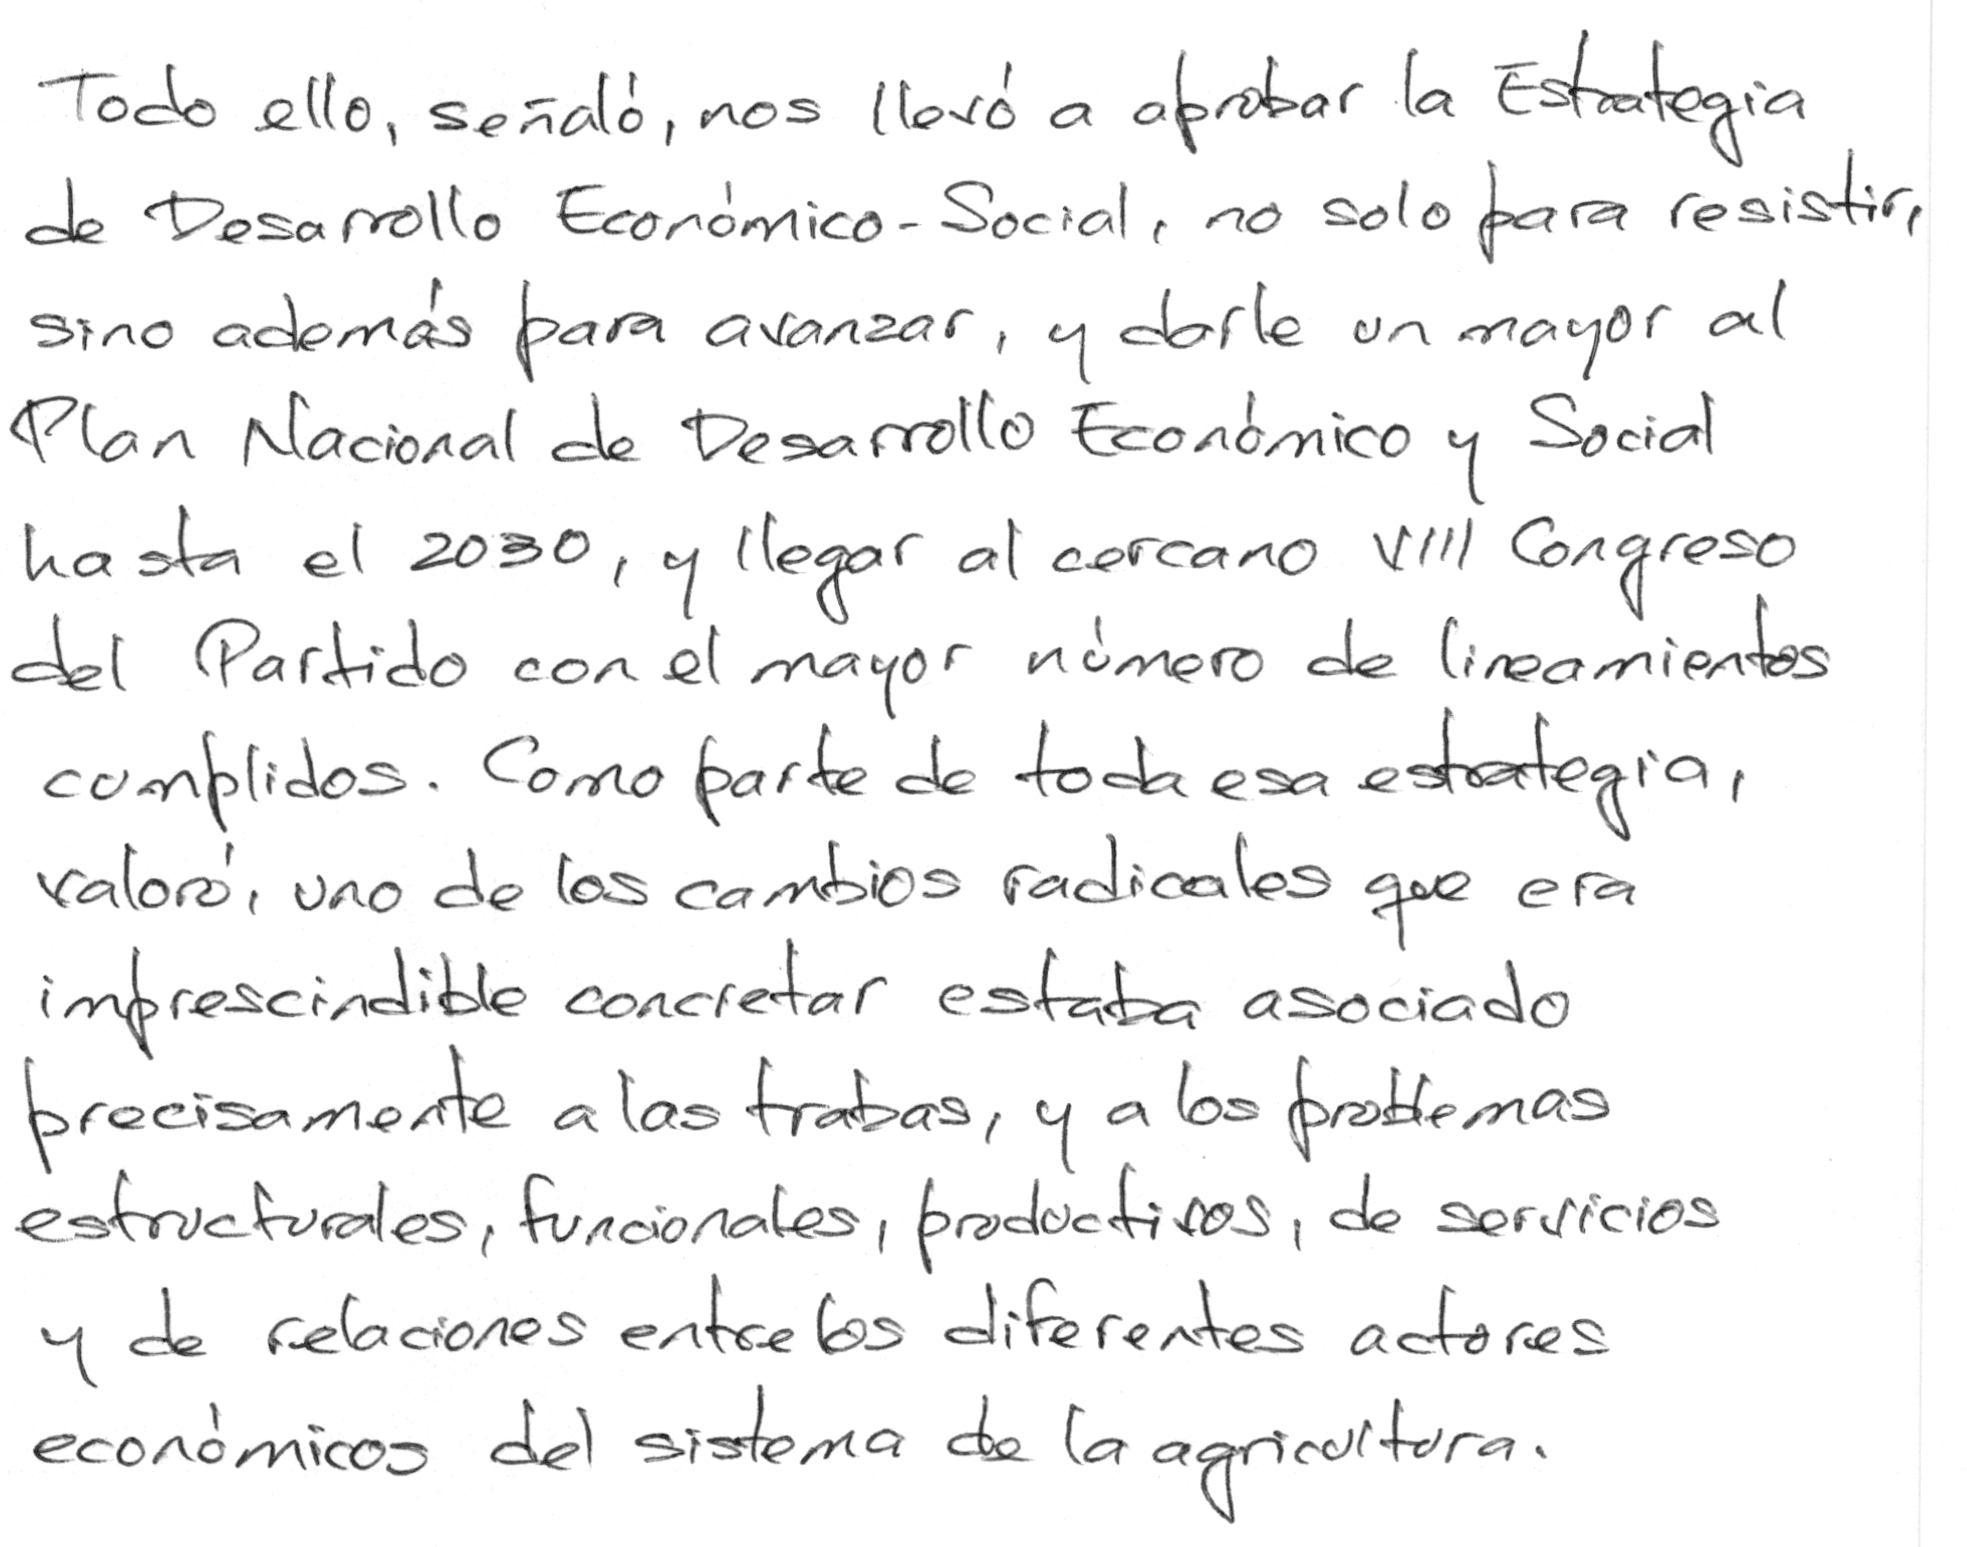 Todo ello, señaló, nos llevó a aprobar la Estrategia
de Desarrollo Económico-Social, no solo para resistir,
sino además para avanzar, y darle un mayor al
Plan Nacional de Desarrollo Económico y Social
hasta el 2030, y llegar al cercano VIII Congreso
del Partido con el mayor número de lineamientos
cumplidos. Como parte de toda esa estrategia,
valoró, uno de los cambios radicales que era
imprescindible concretar estaba asociado
precisamente a las trabas, y a los problemas
estructurales, funcionales, productivos, de servicios
y de relaciones entre los diferentes actores
económicos del sistema de la agricultura.